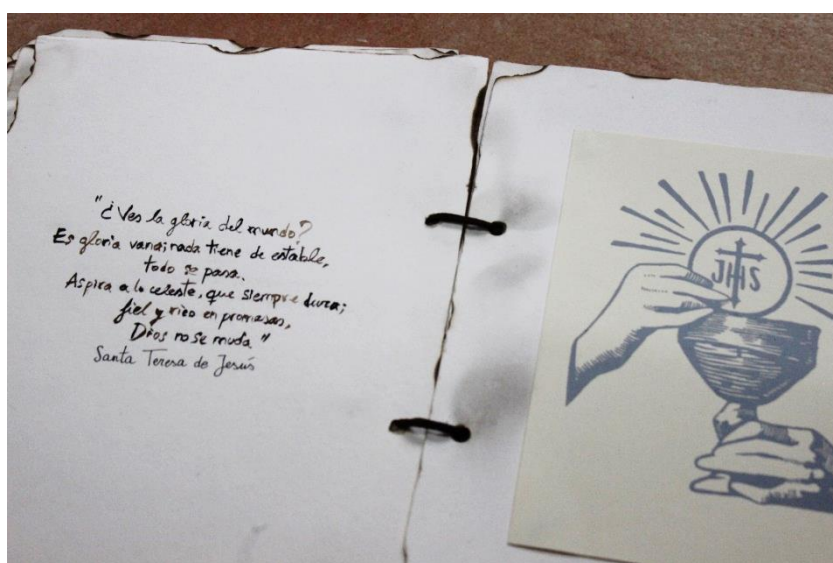 "¿Ves la gloria del mundo?
Es gloria vana; nada tiene de estable,
todo se pasa.
Aspira a lo celeste, que siempre dura;
fiel y rico en promesas,
Dios no se muda"
Santa Teresa de Jesús
JHS